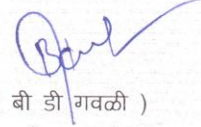 बी डी गवळी )